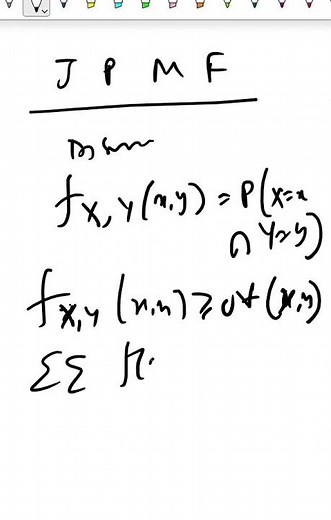 J P M F
f X,Y (x,y) = P(X=x
∩ Y=y)
f X,Y (x,y) ≥ 0 ∀ (x,y)
ΣΣ f(